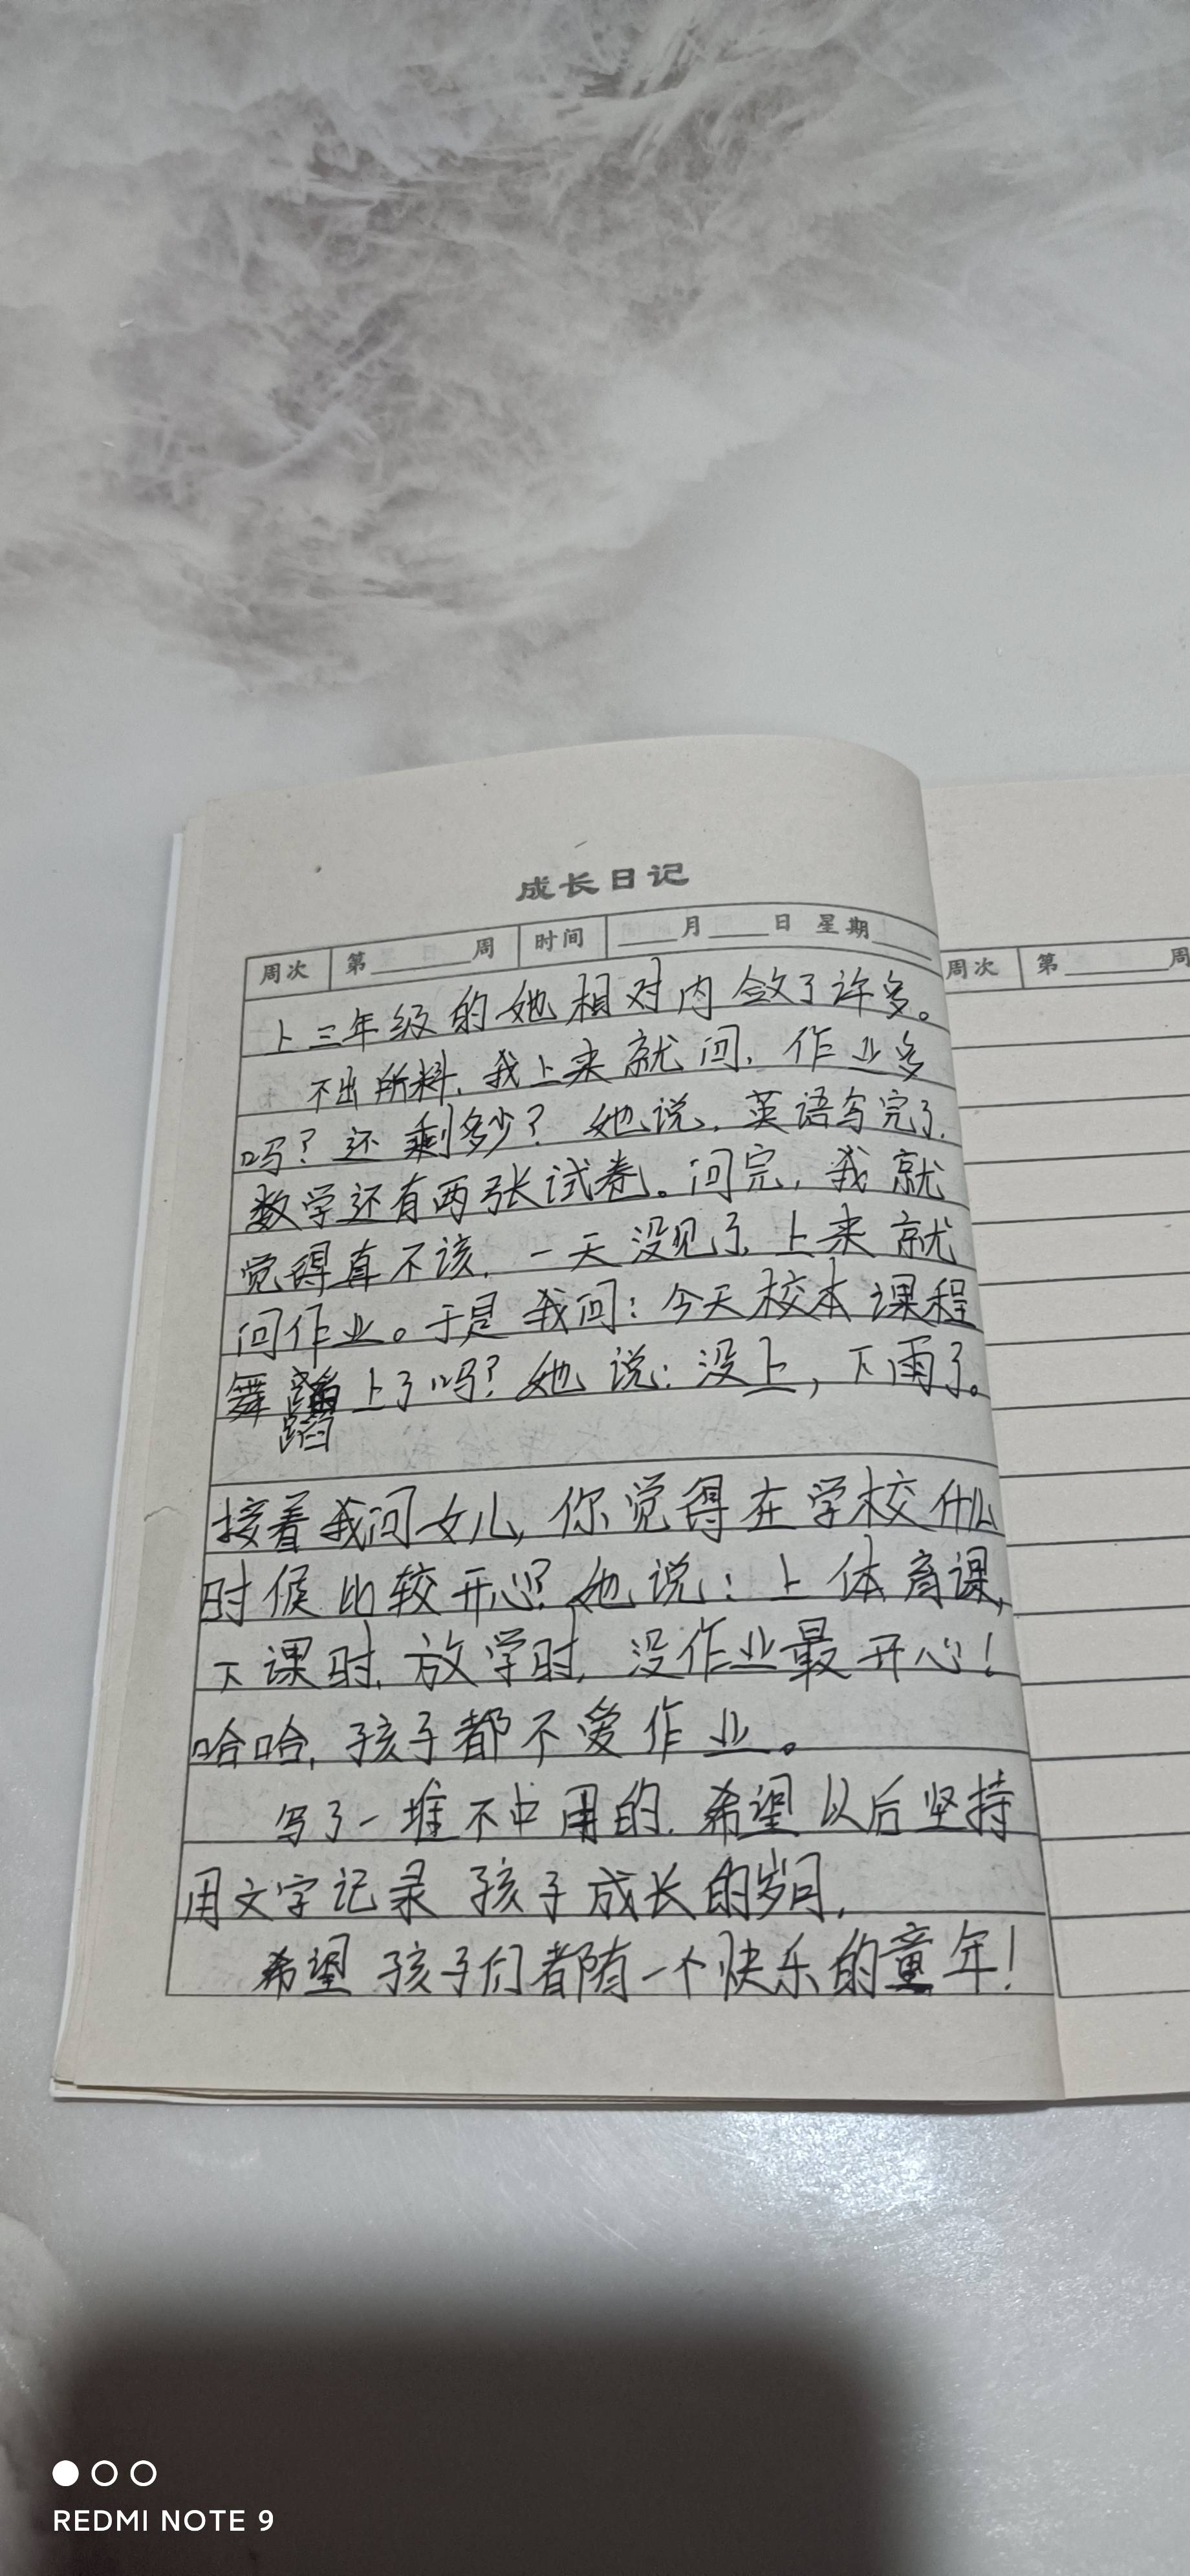 成长日记
周次 第______周 时间 ____月____日 星期____
上三年级的她相对内敛了许多。
不出所料,我上来就问,作业多
吗?还剩多少?她说,英语写完了,
数学还有两张试卷。问完,我就
觉得真不该,一天没见了上来就
问作业。于是我问:今天校本课程
舞蹈上了吗?她说:没上,下雨了。
蹈
接着我问女儿,你觉得在学校什么
时候比较开心?她说:上体育课,
下课时,放学时,没作业最开心!
哈哈,孩子都不爱作业。
写了一堆不中用的,希望以后坚持
用文字记录孩子成长的岁月,
希望孩子们都有一个快乐的童年!
周次 第______周
REDMI NOTE 9